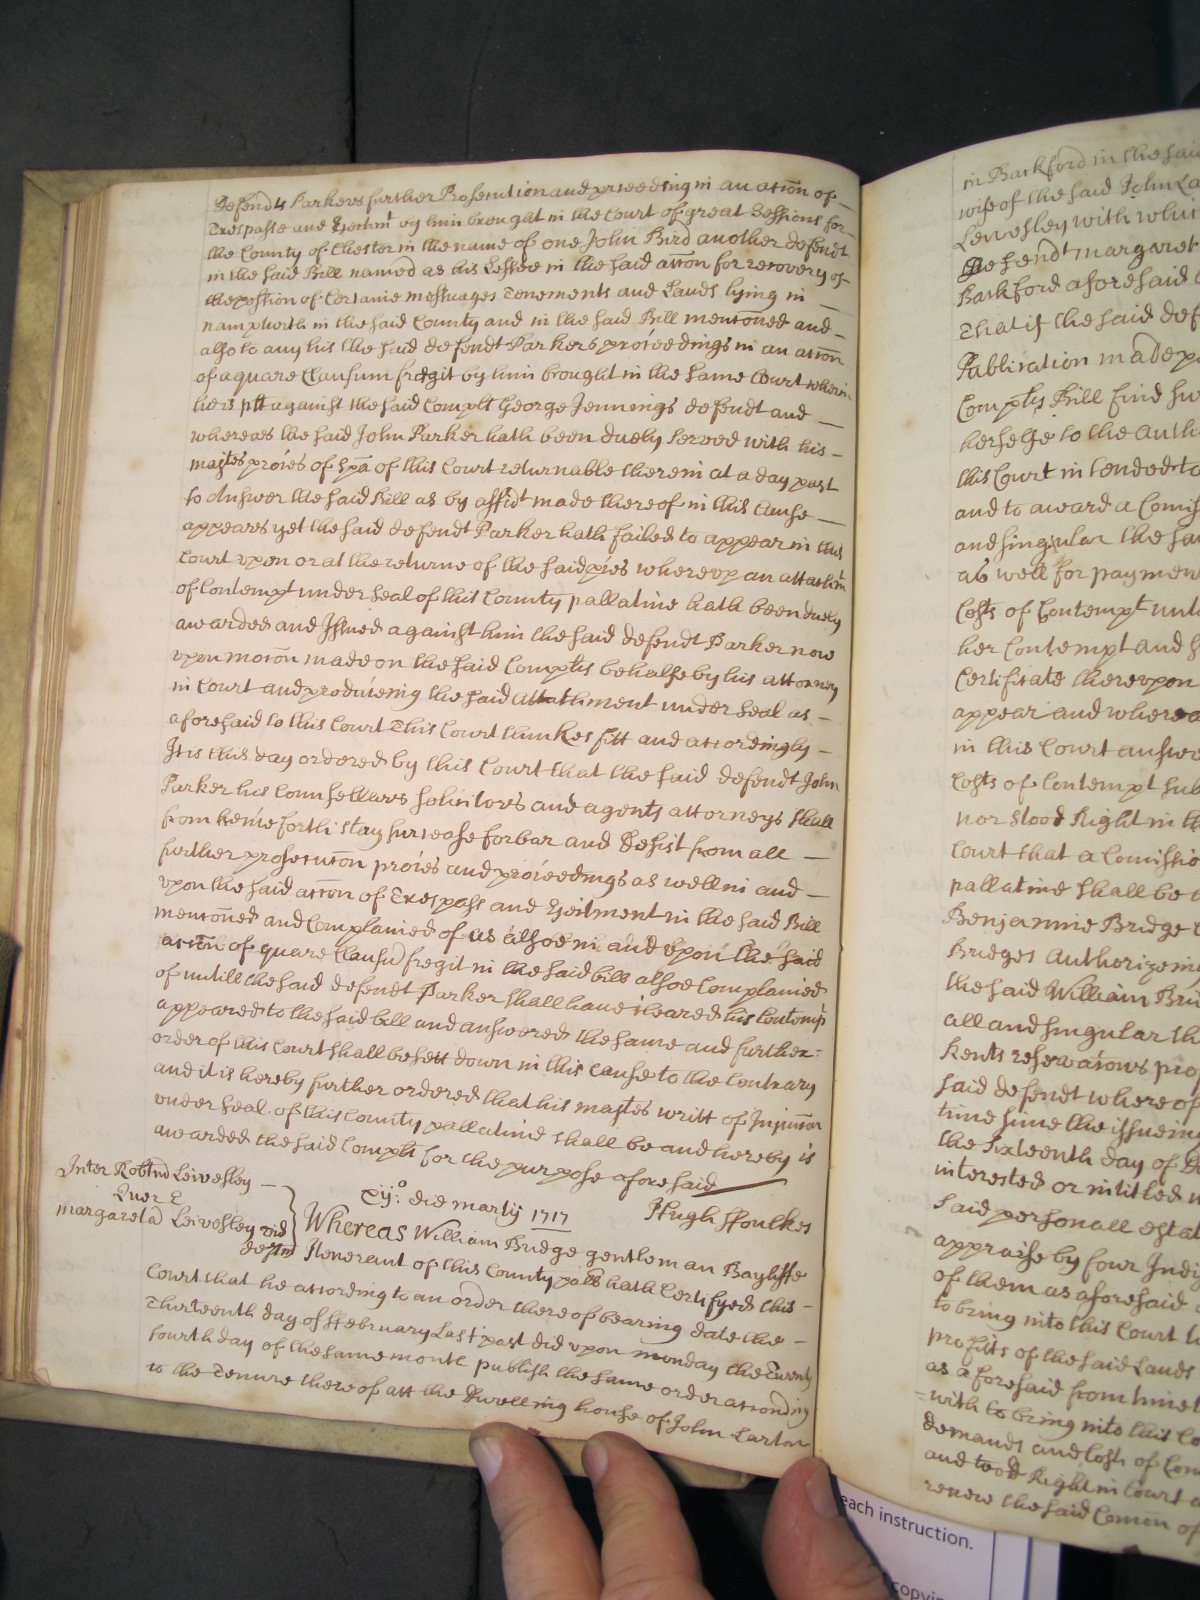 Defendts Parkers further Prosecution and proceeding in an accon of
Trespasse and Ejectmt by him brought in the Court of great Sessions for
the County of Chester in the name of one John Bird another defendt
in the said Bill named as his Lessee in the said accon for recovery of
the possion of Certaine messuages Tenements and Lands lying in
namptwith in the said County and in the said Bill menconed and
also to any his the said defendt Parkers proceedings in an accon
of a quare Clausum fregit by him brought in the same Court wherin
hee is plt against the said Complt George Jennings defendt and
whereas the said John Parker hath been duely served with his
majtes proces of Spa of this Court returnable therein at a day past
to Answer the said Bill as by affidt made thereof in this Cause
appeares yet the said defendt Parker hath failed to appear in this
Court upon or at the returne of the said pces whereup an attachmt
of Contempt under seal of this County pallatine hath been duely
awarded and Issued against him the said defendt Parker now
upon mocon made on the said Complts behalfe by his attorney
in Court and produceing the said attachment under seal as
aforesaid to this Court This Court thinkes fitt and accordingly
It is this day ordered by this Court that the said defendt John
Parker his Counsellars sollicitors and agents attorneys shall
from henceforth stay surcease forbar and desist from all
further prosecucon proces and proceedings as well in and
upon the said accon of Trespass and Ejectment in the said Bill
menconed and Complained of as alsoe in and upon the said
accon of quare Clausu fregit in the said bill alsoe Complained
of untill the said defendt Parker shall have cleared his Contempt
appeared to the said bill and answered the same and further
order of this Court shall be sett down in this cause to the Contrary
and it is hereby further ordered that his majtes writt of Injuncon
under seal of this County pallatine shall be and hereby is
awarded the said Complt for the purpose aforesaid
Hugh Ffoulkes
Inter Robtm Leivesley
Quer &
margareta Leivesley vid
deftm
xijo die martij 1717
Whereas William Bridge gentleman Bayliffe
Itenerant of this County pall hath Certifyed this
Court that he according to an order thereof bearing date the
Thirteenth day of ffebruary Last past did upon munday the Twenty
fourth day of the same month publish the same order according
to the Tenure thereof att the Dwelling house of John Larton
in Backford in the said
wife of the said John La
Leivesley with whi
Defendt margaret
Backford aforesaid
That if the said def
Publication made p
Complts Bill find su
herselfe to the auth
this Court intended to
and to award a Comiss
and singular the sa
as well for paymen
Costs of Contempt unt
her Contempt and
Certificate thereupon
appear and wherea
in this Court answe
Costs of Contempt sub
nor stood Right in th
Court that a Comissio
pallatine shall be
Benjamine Bridge
Bridges Authorizein
the said William Bri
all and singular th
Rents reservacons pro
said defendt whereof
time since the issueing
the sixteenth day of
interested or intitled
said personall estat
appraise by four Indi
of them as aforesaid
to bring into this Court
profitts of the said Lands
as aforesaid from time t
with to bring into this Co
demands and Costs of Con
and stood Right in Court
renew the said Comon of
each instruction.
copyin